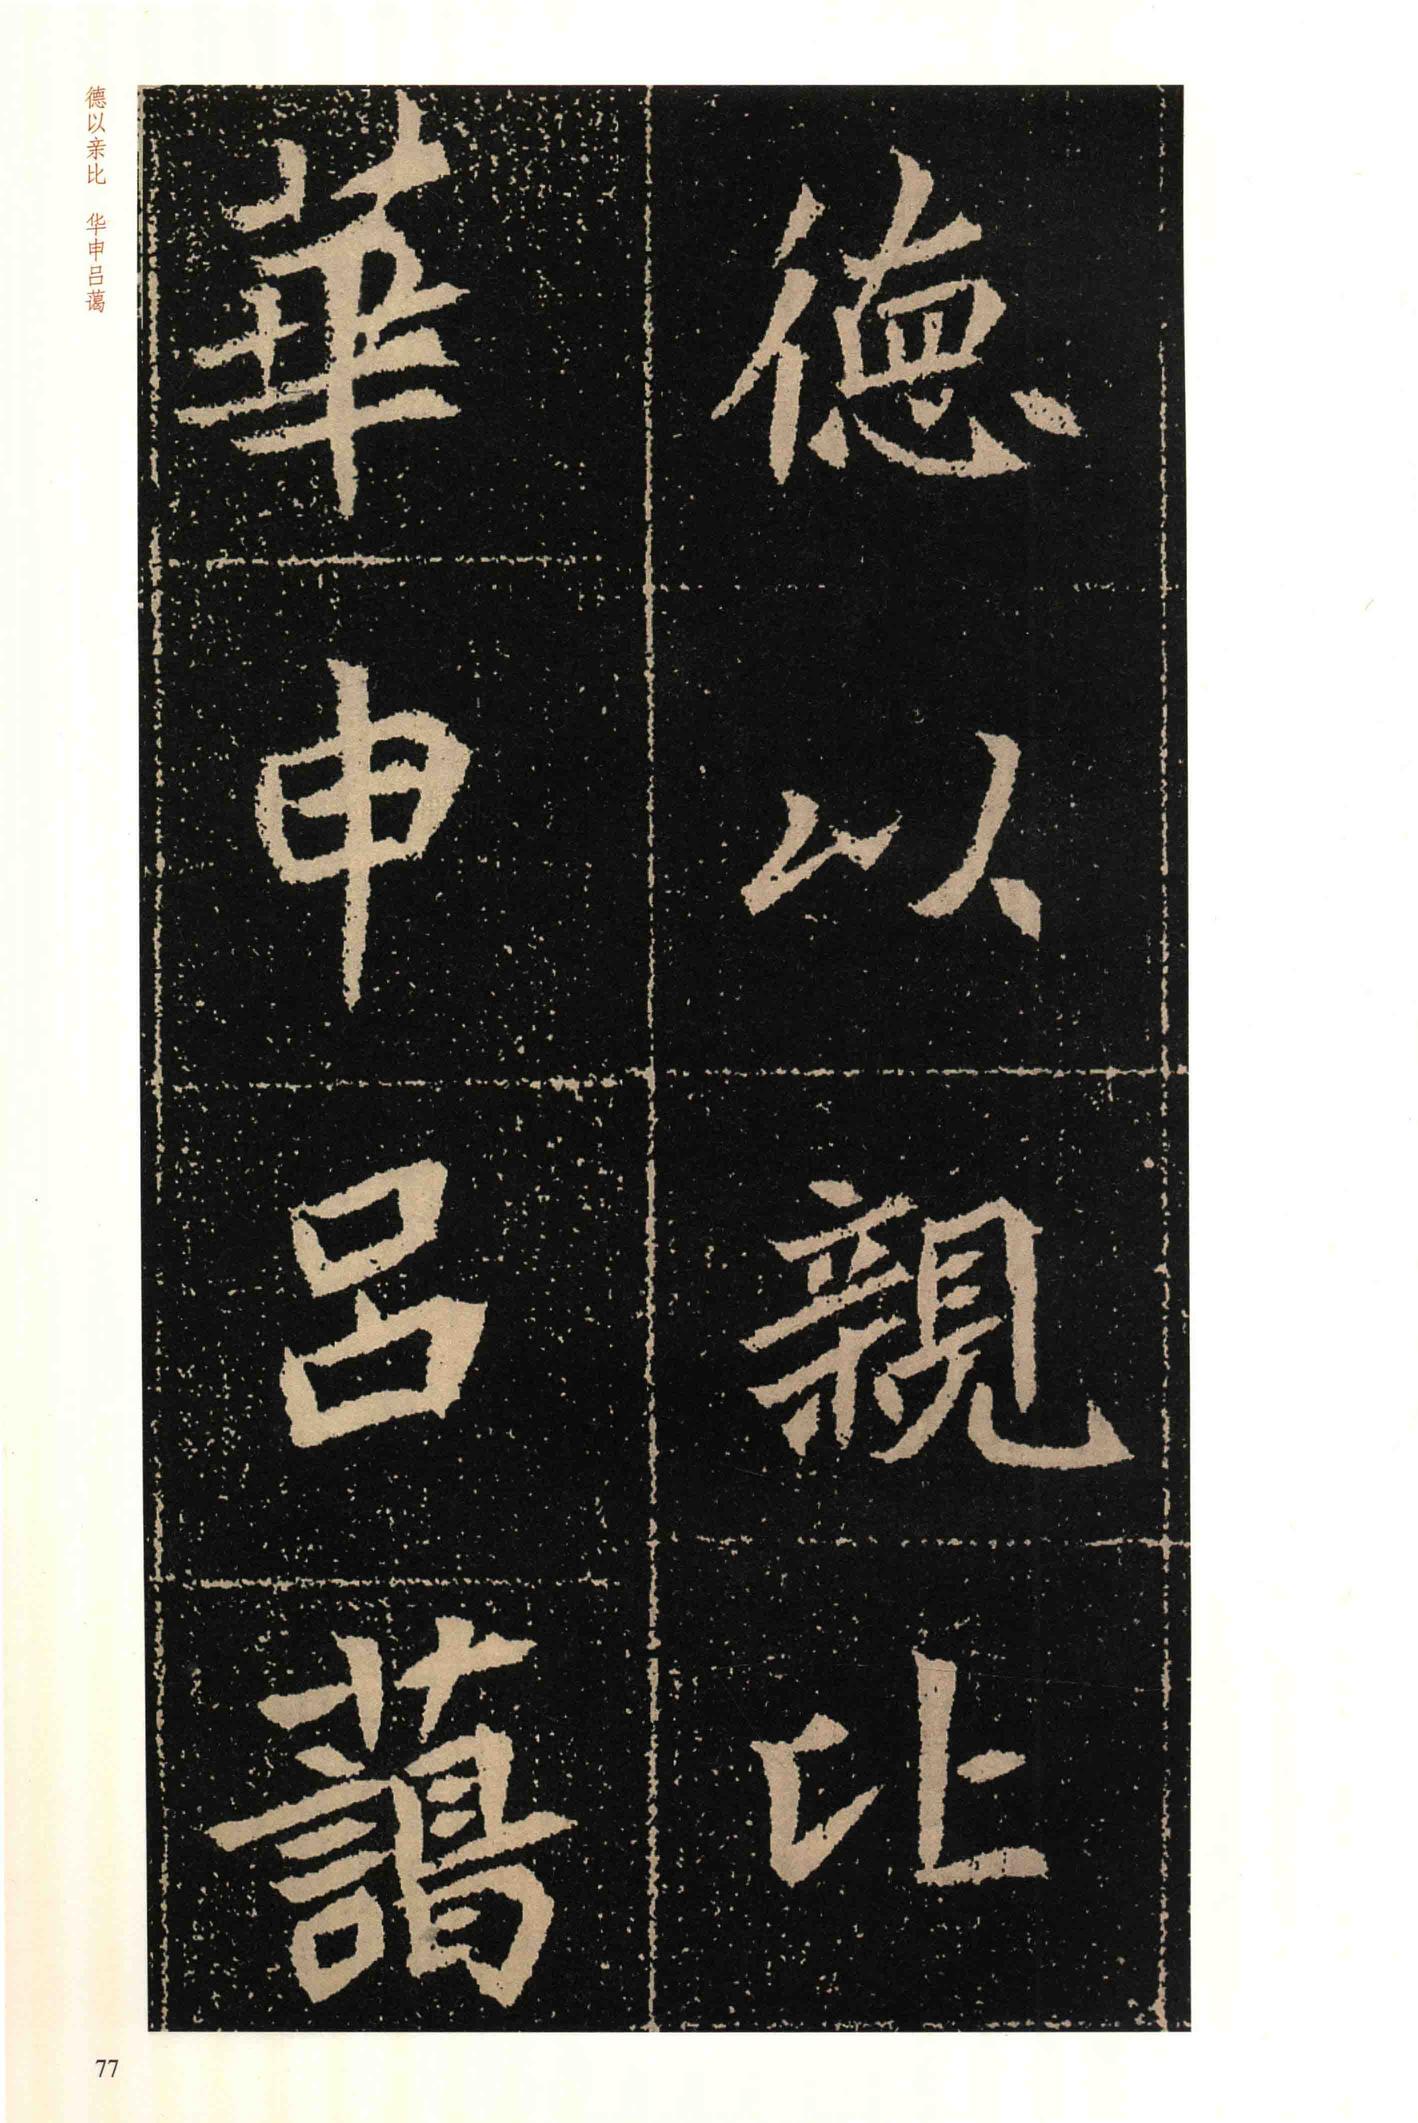 德以親比
華申呂藹
德以亲比　华申吕蔼
77